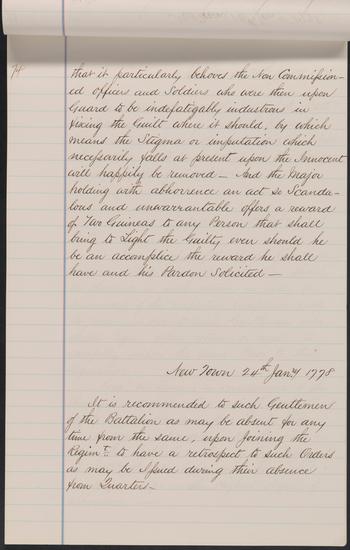 74
that it particularly behoves the Non Commission-
ed officers and Soldiers who were then upon
Guard to be indefatigably industrous in
fixing the Guilt where it should, by which
means the Stigma or imputation which
necessarily falls at present upon the Innocent
will happily be removed — And the Major
holding with abhorrence an act so Scanda-
lous and unwarrantable offers a reward
of Two Guineas to any Person that shall
bring to Light the Guilty even should he
be an accomplice the reward he shall
have and his Pardon Solicited —
New Town 24th Jany 1778
It is recommended to such Gentlemen
of the Battalion as may be absent for any
time from the same, upon joining the
Regimt. to have a retrospect to such Orders
as may be Issued during their absence
from Quarters —